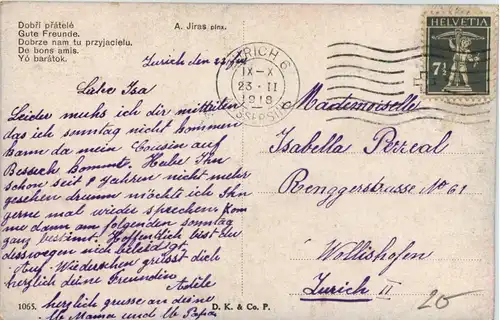 Dobří přátelé
Gute Freunde.
Dobrze nam tu przyjacielu.
De bons amis.
Yó barátok.
A. Jiras pinx.
ZÜRICH 6
IX-X
23. II
1918
HELVETIA
7½
Zurich den 23
Liebe Isa
Leider muhs ich dir mitteilen
das ich sonntag nicht kommen
kann da mein Cousin auf
Besuch kommt. Habe Ihn
schon seit 8 Jahren nicht mehr
gesehen drumm möchte ich Ihn
gerne mal wieder sprechen. Kom
me dann am folgenden sonntag
ganz bestimmt. Hoffentlich bist du
desswegen nich beleidigt.
Auf Wiedersehen grüsst dich
herzlich deine Freundin
herzlich grusse an deine
lb Mama und lb Papa
Mademoiselle
Isabella Perreal
Renggerstrasse No 61
Wollishofen
Zurich II
20
1065.
D. K. & Co. P.